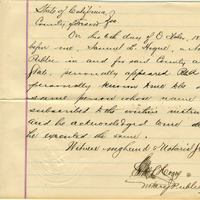 State of California,
County of Fresno } ss
On this 6th day of October, 18
before me, Samuel L. Hogue, a No
Public in and for said County a
State, personally appeared
personally known to me to
same person whose name
subscribed to the within instru
and he acknowledged to me
he executed the same.
Witness my hand & Notarial S
Notary Public